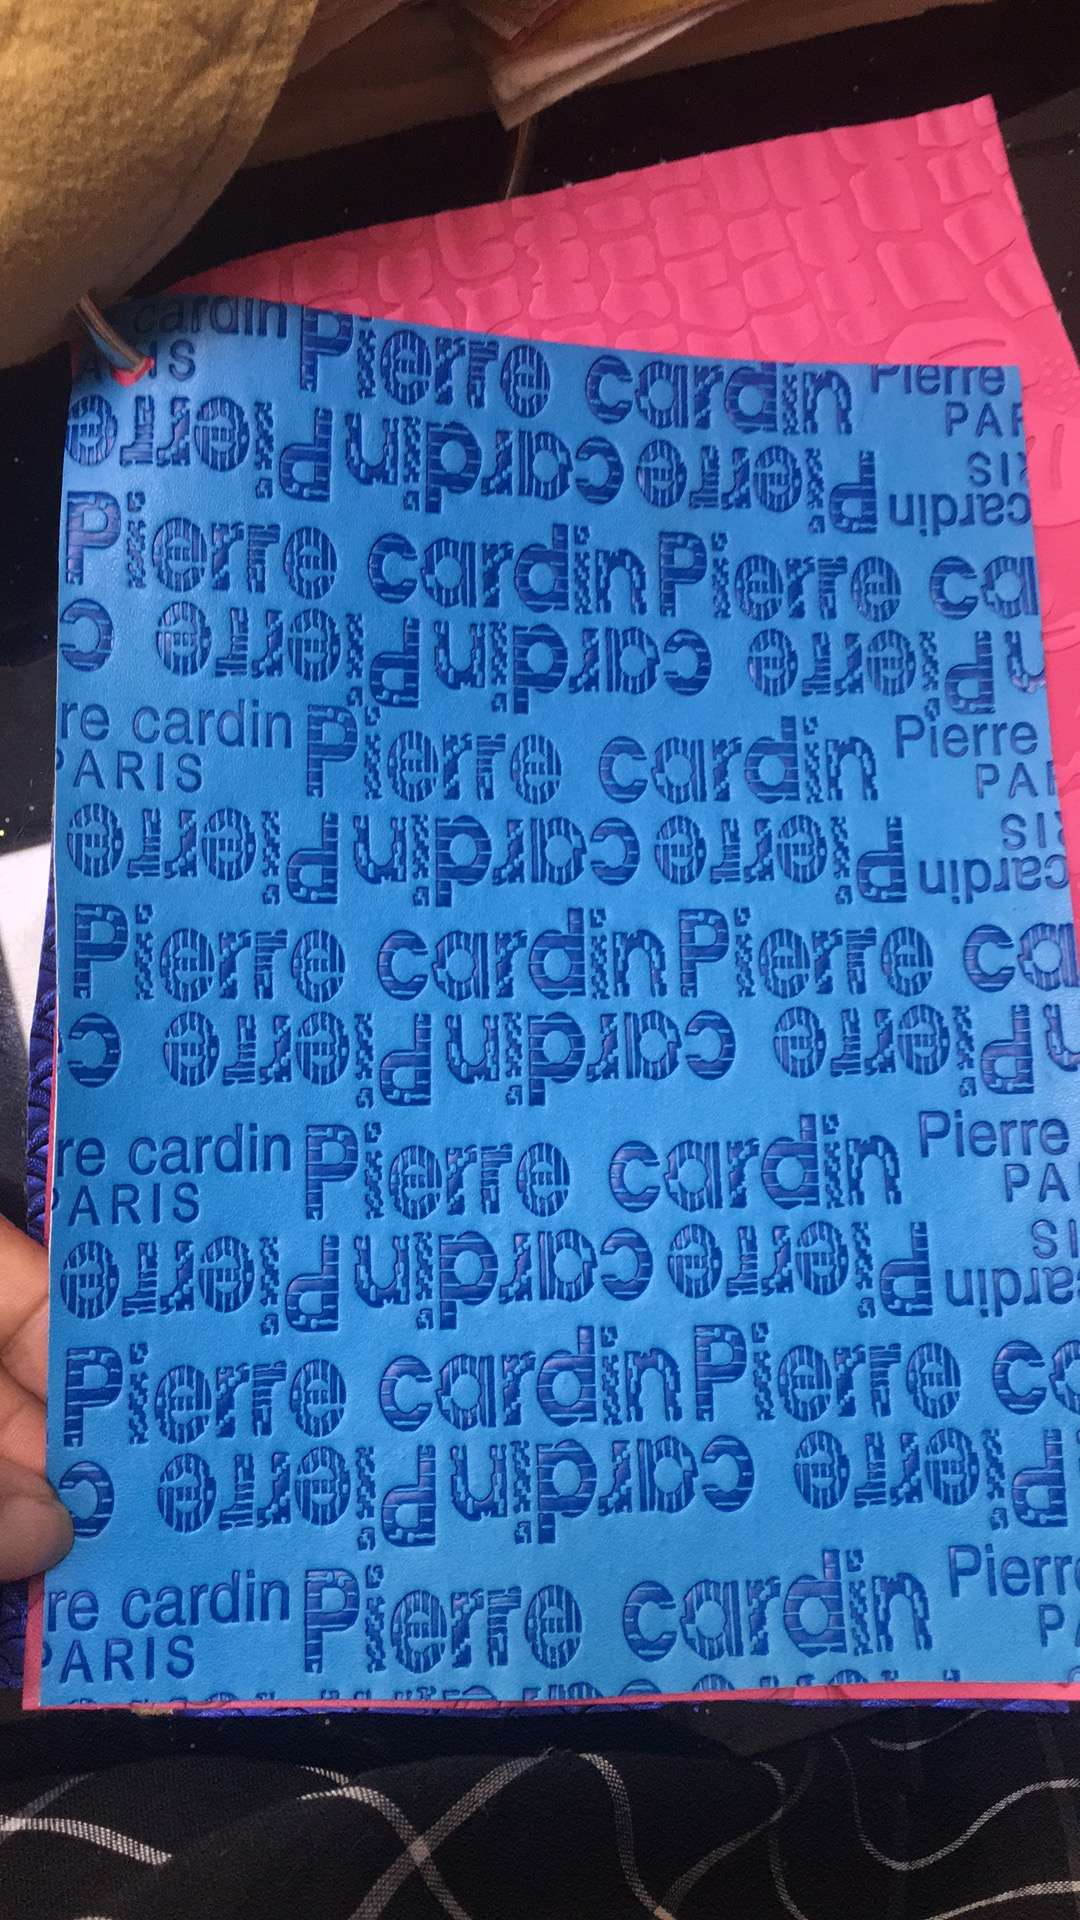 cardin Pierre cardin Pierre
ARIS PAR
Pierre cardin Pierre cardin
RIS
Pierre cardin Pierre ca
Pierre cardin Pierre c
re cardin Pierre cardin Pierre
PARIS PAR
Pierre cardin Pierre cardin
RIS
Pierre cardin Pierre ca
Pierre cardin Pierre c
re cardin Pierre cardin Pierre
PARIS PA
cardin Pierre cardin Pierre
IS
Pierre cardin Pierre ca
Pierre cardin Pierre c
re cardin Pierre cardin Pierre
PARIS P